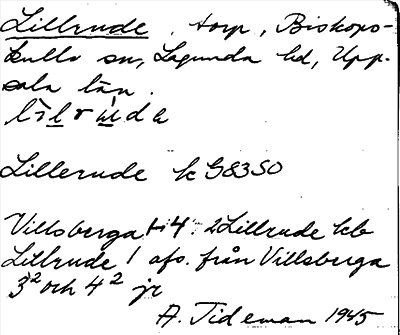 Lillrude, torp, Biskops-
kulla sn, Lagunda hd, Upp-
sala län.
Lillerude k G83SO
Villsberga t-i4: 2Lillrude kb
Lillrude / afs. från Villsberga
3² och 4² jr
A. Tideman 1945